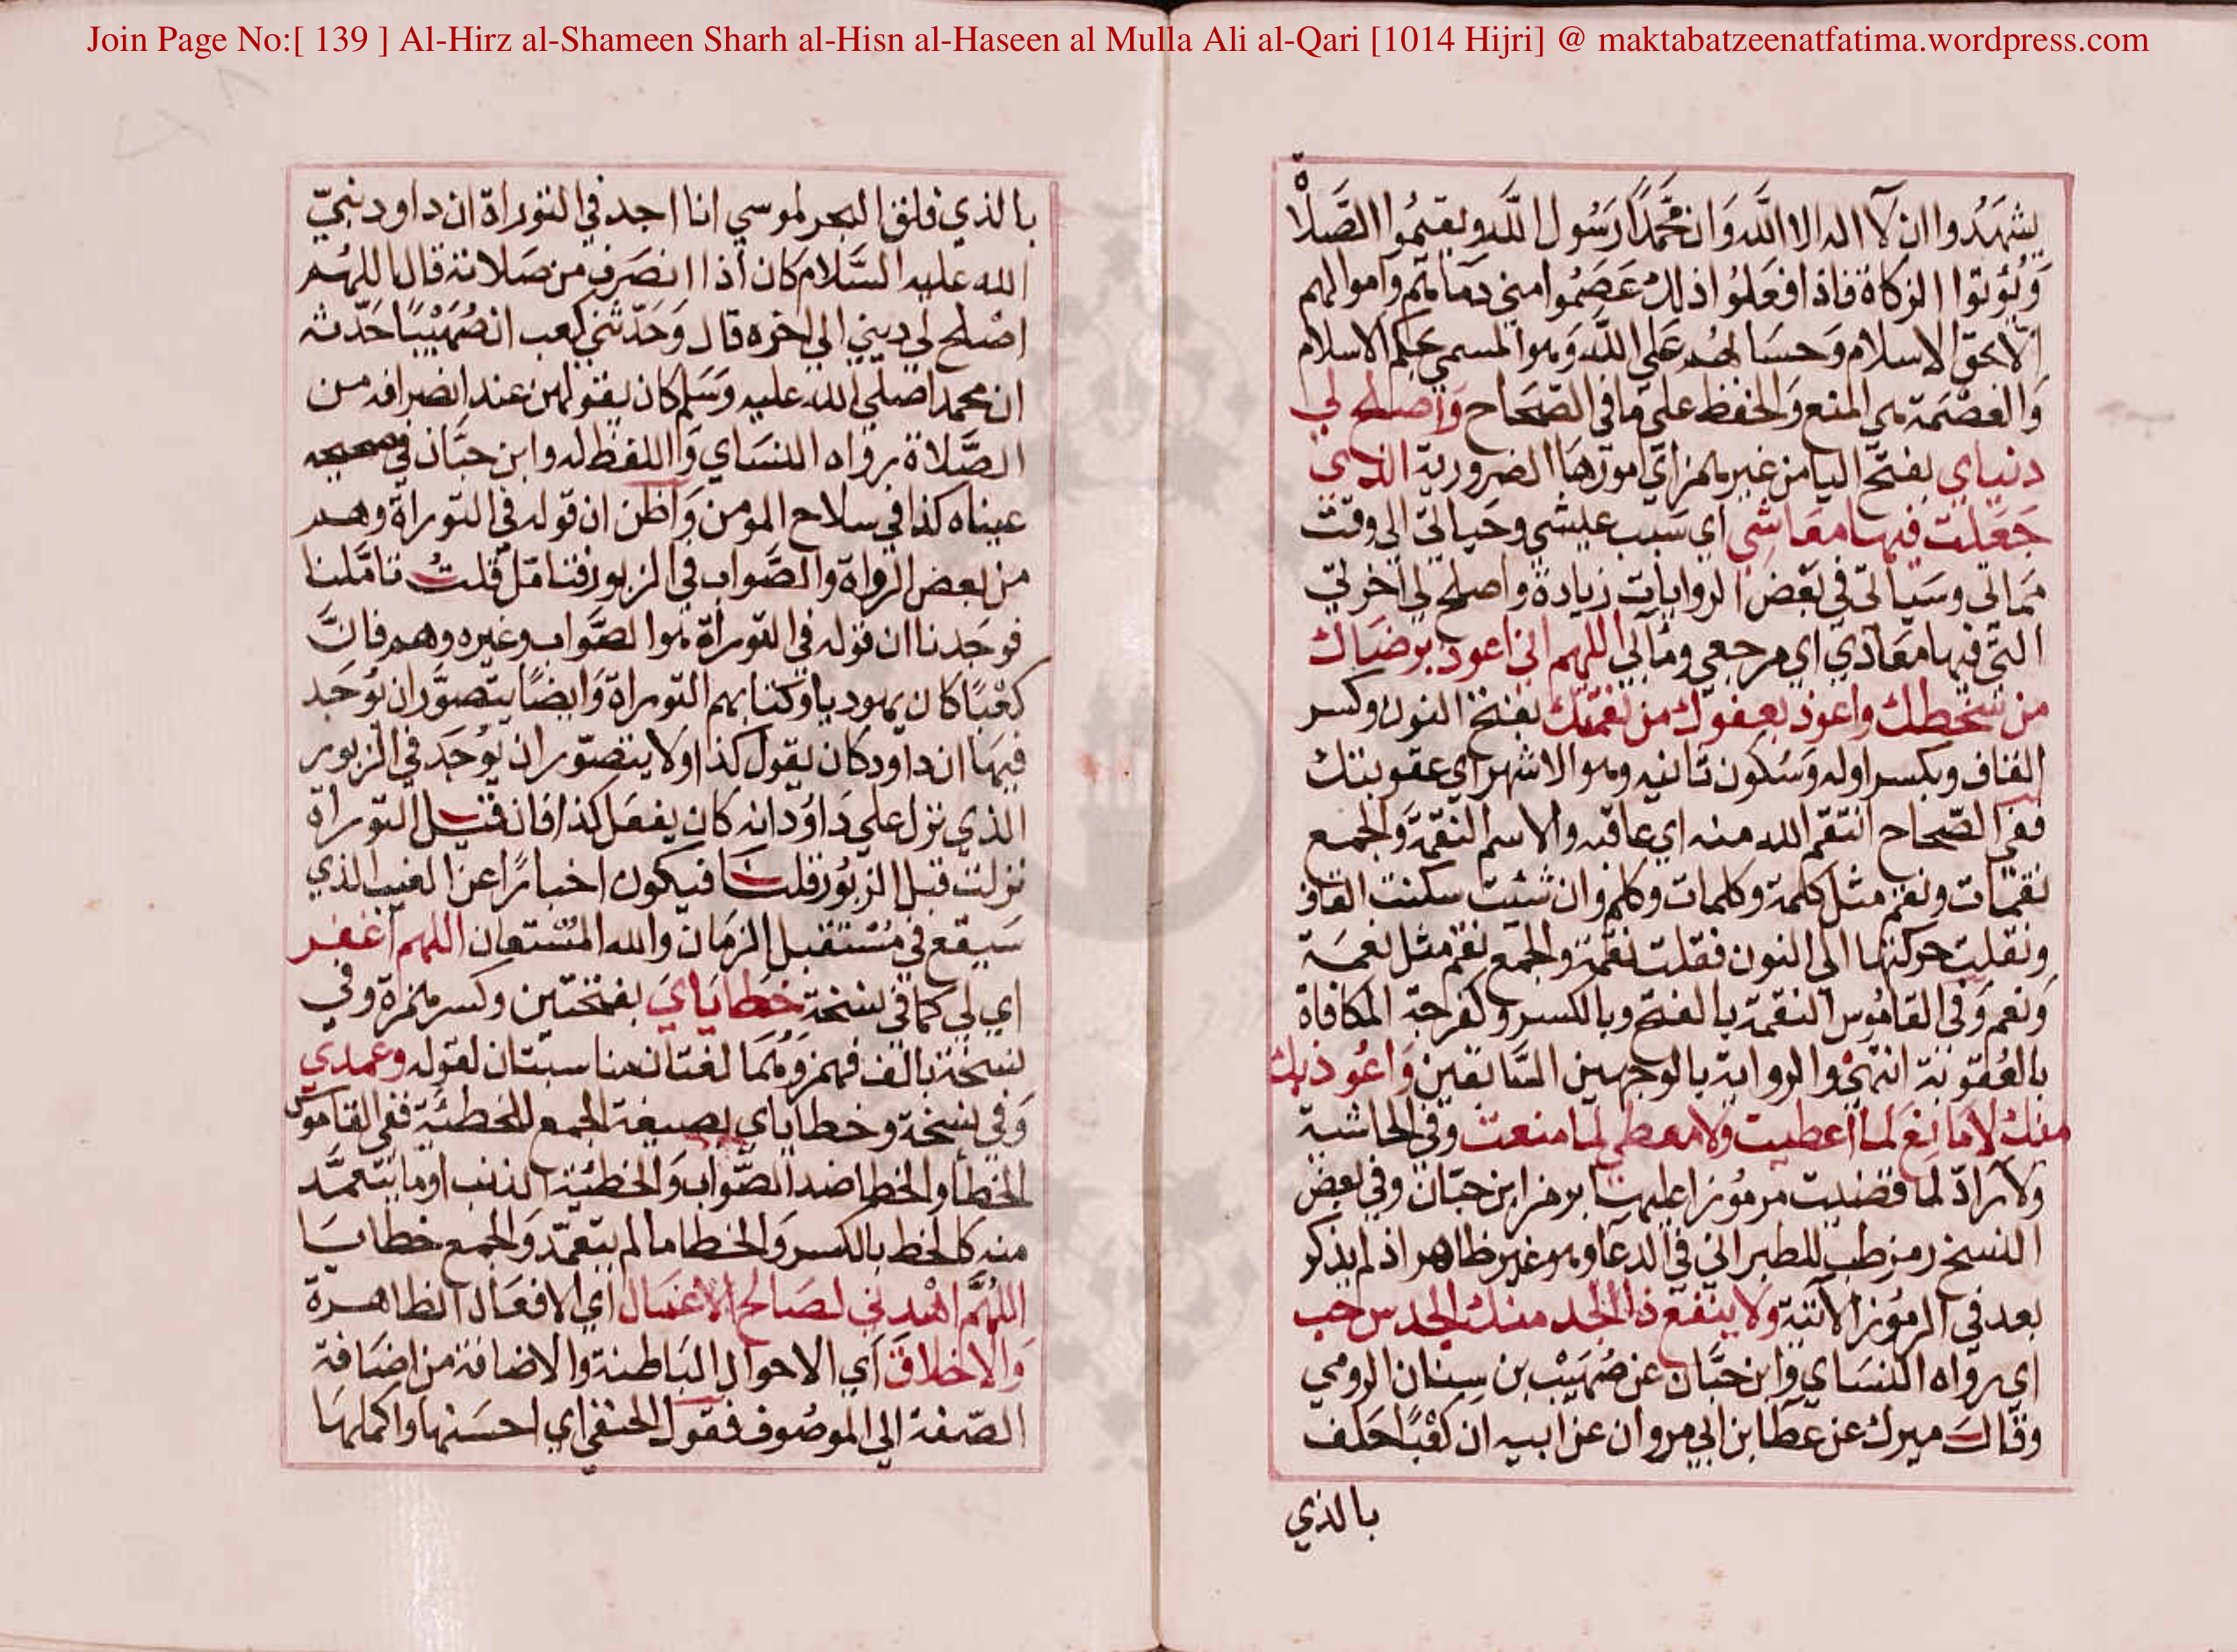 Join Page No:[ 139 ] Al-Hirz al-Shameen Sharh al-Hisn al-Haseen al Mulla Ali al-Qari [1014 Hijri] @ maktabatzeenatfatima.wordpress.com
يشهَدُوا ان لآ اله الا اللَّه وَان محَّمدًا رَسُول اللَّه ويقيمُوا الصَّلاة
وَيُؤتوا الزكاة فاذا فعَلوُا ذلك عَصَمُوا مني دمَاءَهُم وَاموالهم
اِلّا بحق الاسلام وَحسَابهُم عَلي اللَّه وَهو المسمي بحكم الاسلام
وَالعصْمَة هي المنع وَالحفظ علي مَا في الصّحَاح وَاَصلح لي
دنياي بفتح اليا من غير همز اي امورهَا الضرورية التي
جَعَلت فيهَا معَاشِي اي سَبب عيشي وحَياتي الي وقت
ممَاتي وسَياتي في بَعْض الروايات زيادة واصلح لي اخرتي
التي فيهَا معَادي اي مرجعي ومَآلي اللهم اني اعوذ برضَاك
من سَخطك واعوذ بعفوك من نقمتك بفتح النون وكسر
القاف وبكسر اوله وَسُكون ثانيه وهو الاشهر اي عقوبتك
ففي الصّحاح انتقم الله منه اي عاقبه والاسم النقمَة وَالجمع
نقمَات ونقم مثل كلمة وكلمات وكلم وان شئت سكنت القاف
ونقلت حركتها الي النون فقلت نقمة والجمع نقم مثل نعمَة
وَنعم وَفي القامُوس النقمة بالفتح وبالكسر وكفرحة المكافاة
بالعُقوبَة انتهيْ والرواية بالوجهين السَّابقين وَاعُوذ بك
منك لا مَانِعَ لما اعطيت ولا معطي لما منعت وفي الحاشية
ولا رادّ لما قضيت مرموزا عليهَا برمز ابن حبّان وفي بعض
النسخ رمز طب للطبراني في الدعا وهو غير ظاهر اذ لم يذكر
بعد في الرموز الاتية ولا ينفع ذا الجد منك الجد س حب
اي رواه النسَاي وَابن حبَّان عن صُهَيْب بن سِنان الرومي
وقالَ ميرك عن عطا بن ابي مروان عن ابيه ان كعْبًا حَلف
بالذي
بالذي فلق البحر لموسي انا اجد في التوراة ان داود نبيّ
الله عليه السَّلام كان اذا انصَرف من صَلاته قال اللهُم
اصْلح لي ديني الي اخره قال وَحَدّثني كعب ان صُهَيْبًا حَدّثه
ان محمدا صلي الله عليه وَسَلم كان يقولهن عند انصرافه من
الصَّلاة رواه النسَاي وَاللفظ له وابن حبَّان في صحيحه
عيناه كذا في سلاح المومن وَاَظن ان قوله في التوراة وهم
من بعض الرواة والصَّواب في الزبور فتامّل قلتُ تامَّلنا
فوجَدنا ان قوله في التوراة هوا الصَّواب وغيره وهم فانَّ
كعْبًا كان يهوديا وكتابهم التوراة وَايضًا يتصوَّر ان يُوجَد
فيهَا ان داود كان يقول كذا ولا يتصوّر ان يوُجَد في الزبور
الذي نزل علي دَاوُد انه كان يفعَل كذا فَان قيل التوراة
نزلت قبل الزبُور قلت فيكون اخبارًا عن الغيب الذي
سَيقع في مُسْتقبل الزمَان والله المُسْتعان اللهم اغفر
اي لي كما في نسْخة خطايَايَ بفتحَتين وكسر همزة وفي
نسخة بالف فهمز وَهُمَا لغتان مناسبتان لقوله وعمدي
وَفي نسْخة وخطاياي بصيغة الجمع للخطئَية ففي القاموُس
الخطأ والخطا ضد الصَّواب وَالخطيئة الذنب اوما تتعمَّد
منه كالخط بالكسر وَالخطا ما لم يتعمّد وَالجمع خطايَا
اللهُمَّ اهْدني لصَالح الأعْمَال اي الافعَال الظاهرة
وَالاخلاق اَي الاحوال البَاطنة والاضافة من اضَافة
الصّفة الي الموصُوف فقول الحنفي اي احسَنها واكملهَا